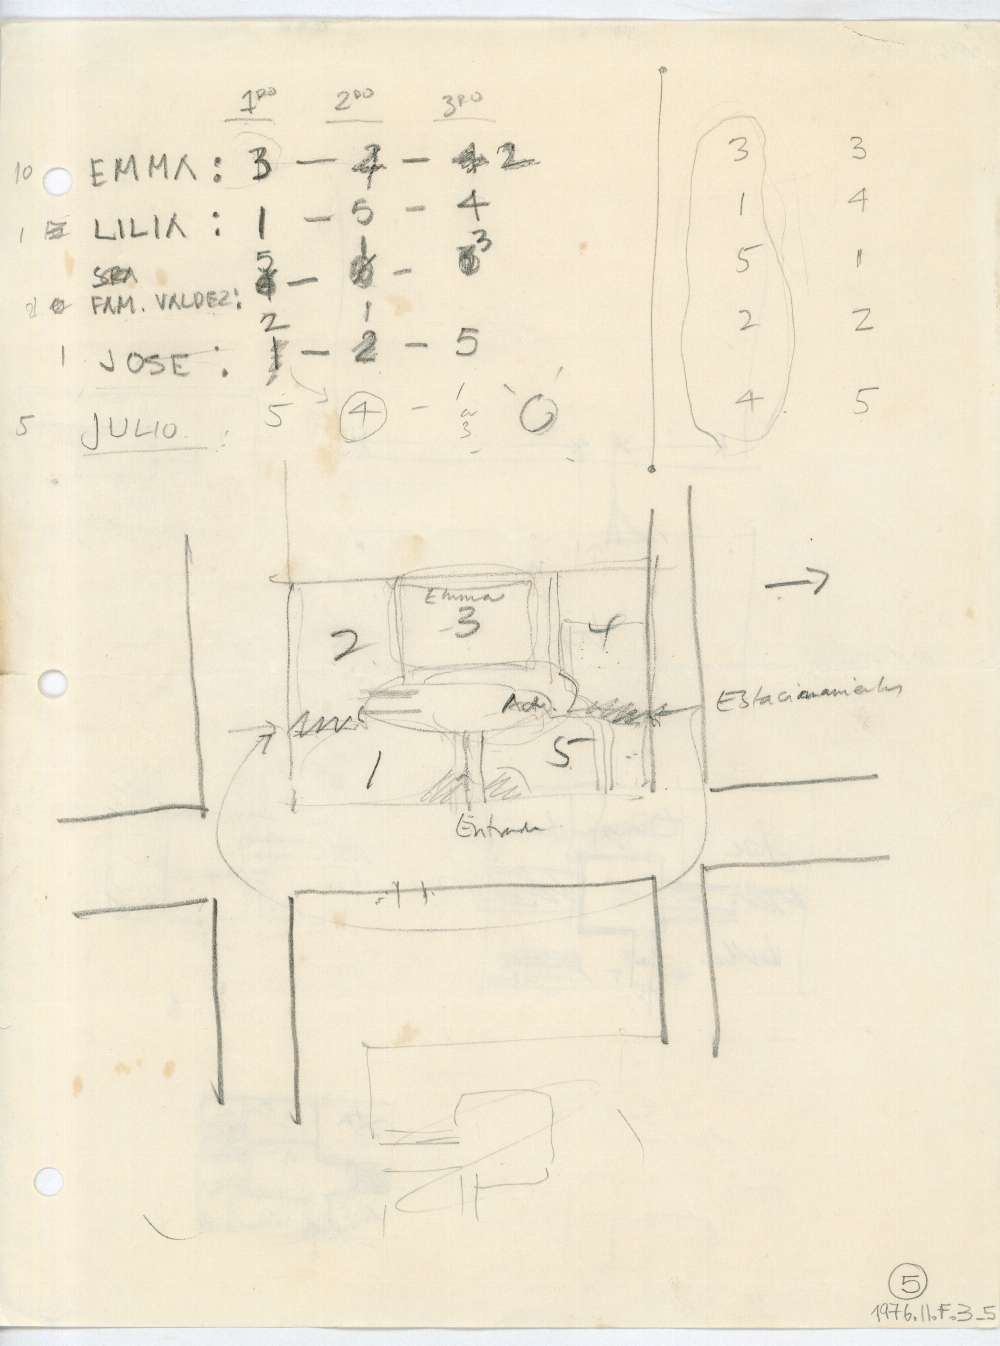 1RO 2DO 3RO
10 EMMA: 3 — 4 — 2
1 LILIA: 1 — 5 — 4
SRA 5 1 3
2 FAM. VALDEZ: —  —
2 1
1 JOSE: 1 — 2 — 5
5 JULIO: 5 4 — 1 ó 3
3 3
1 4
5 1
2 2
4 5
Emma
2 3 4
Adm.
Estacionamientos
1 5
Entrada
5
1976.11.F.3_5